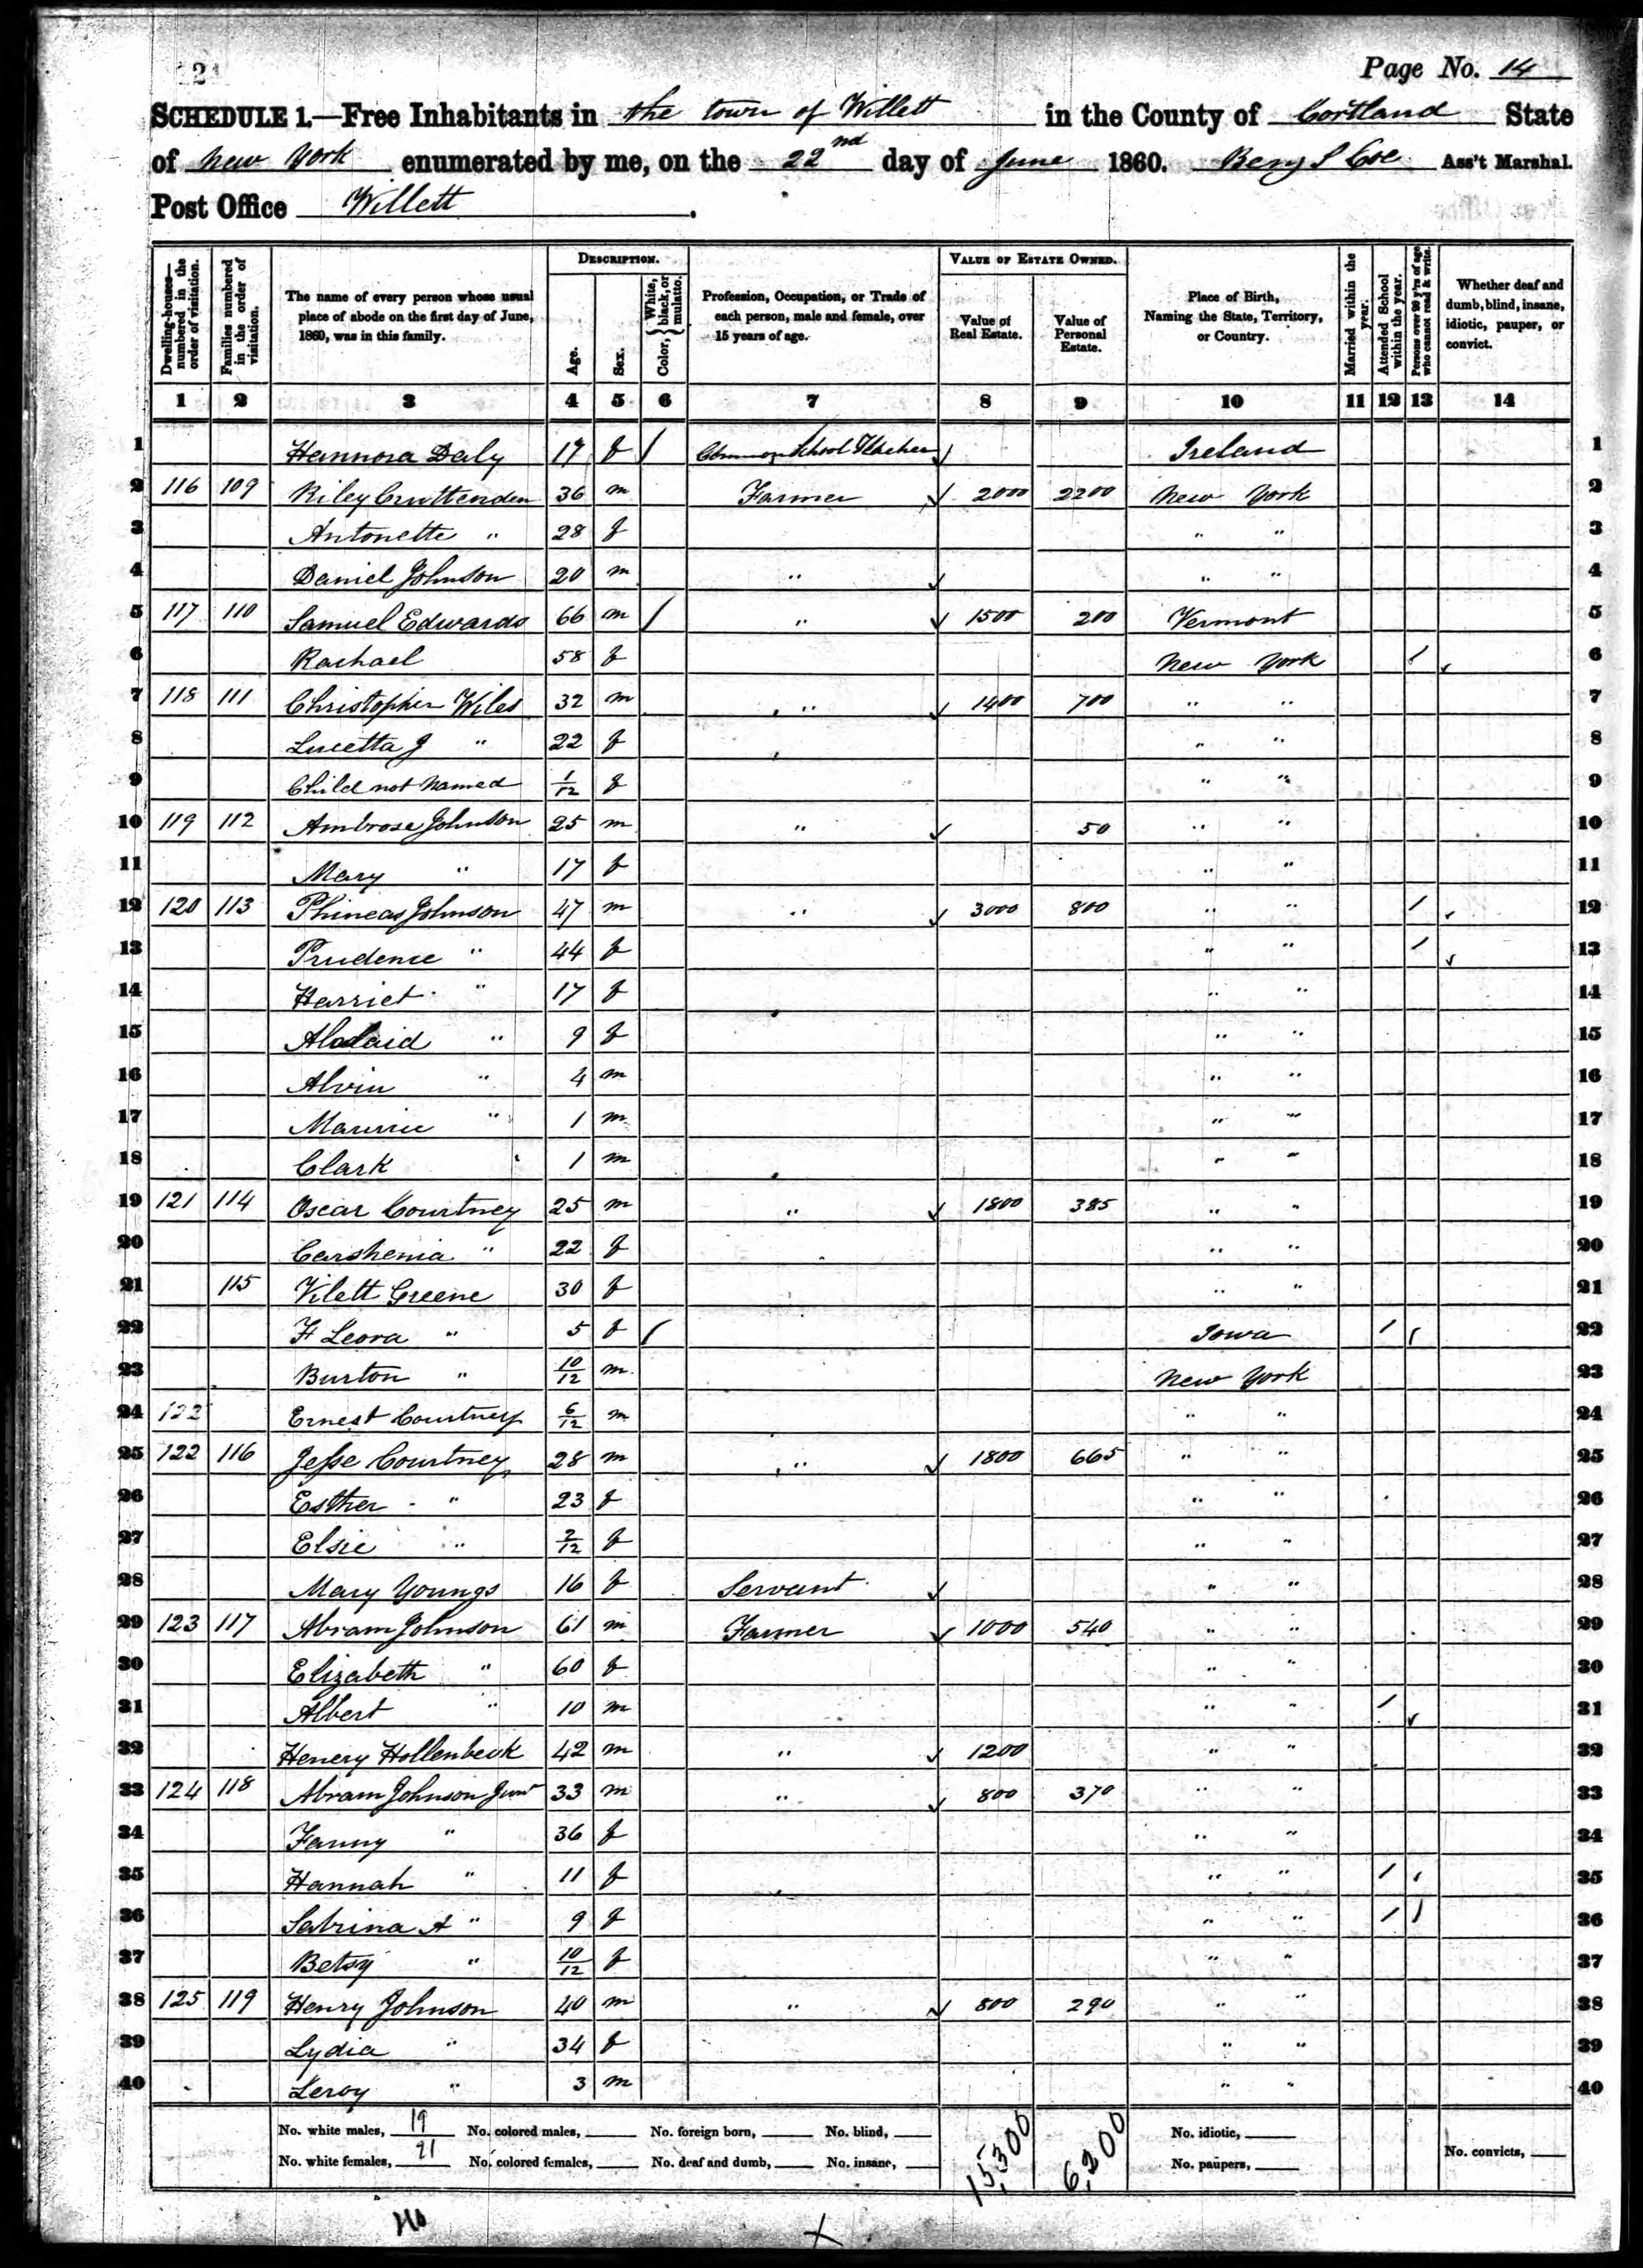 2
Page No. 14
SCHEDULE 1.—Free Inhabitants in the town of Willett in the County of Cortland State
of New York enumerated by me, on the 22nd day of June 1860. Benj S Coe Ass't Marshal.
Post Office Willett.
Dwelling-houses—numbered in the order of visitation.
Families numbered in the order of visitation.
The name of every person whose usual place of abode on the first day of June, 1860, was in this family.
DESCRIPTION.
Age.
Sex.
Color, { White, black, or mulatto.
Profession, Occupation, or Trade of each person, male and female, over 15 years of age.
VALUE OF ESTATE OWNED.
Value of Real Estate.
Value of Personal Estate.
Place of Birth, Naming the State, Territory, or Country.
Married within the year.
Attended School within the year.
Persons over 20 y'rs of age who cannot read & write.
Whether deaf and dumb, blind, insane, idiotic, pauper, or convict.
1 2 3 4 5 6 7 8 9 10 11 12 13 14
1 Hannora Daly 17 f / Common School Teacher Ireland 1
2 116 109 Riley Cruttenden 36 m Farmer 2000 2200 New York 2
3 Antonette " 28 f " " 3
4 Daniel Johnson 20 m " " " 4
5 117 110 Samuel Edwards 66 m / " 1500 200 Vermont 5
6 Rachael 58 f New York / 6
7 118 111 Christopher Wiles 32 m " 1400 700 " " 7
8 Lucetta J " 22 f " " 8
9 Child not Named 1/12 f " " 9
10 119 112 Ambrose Johnson 25 m " 50 " " 10
11 Mary " 17 f " " 11
12 120 113 Phineas Johnson 47 m " 3000 800 " " / 12
13 Prudence " 44 f " " / 13
14 Harriet " 17 f " " 14
15 Aladaid " 9 f " " 15
16 Alvin " 4 m " " 16
17 Maurice " 1 m " " 17
18 Clark " 1 m " " 18
19 121 114 Oscar Courtney 25 m " 1800 385 " " 19
20 Carshenia " 22 f " " 20
21 115 Vilett Greene 30 f " " 21
22 F Leora " 5 f / Iowa / / 22
23 Burton " 10/12 m New York 23
24 122 Ernest Courtney 6/12 m " " 24
25 122 116 Jesse Courtney 28 m " 1800 665 " " 25
26 Esther " 23 f " " 26
27 Elsie " 2/12 f " " 27
28 Mary Youngs 16 f Servant " " 28
29 123 117 Abram Johnson 61 m Farmer 1000 540 " " 29
30 Elizabeth " 60 f " " 30
31 Albert " 10 m " " / 31
32 Henery Hollenbeck 42 m " 1200 " " 32
33 124 118 Abram Johnson Junr 33 m " 800 370 " " 33
34 Fanny " 36 f " " 34
35 Hannah " 11 f " " / 35
36 Sabrina A " 9 f " " / / 36
37 Betsy " 10/12 f " " 37
38 125 119 Henry Johnson 40 m " 800 290 " " 38
39 Lydia " 34 f " " 39
40 Leroy " 3 m " " 40
No. white males, 19 No. colored males, No. foreign born, No. blind, 15,300 6,200 No. idiotic,
No. white females, 21 No. colored females, No. deaf and dumb, No. insane, No. paupers, No. convicts,
40
X